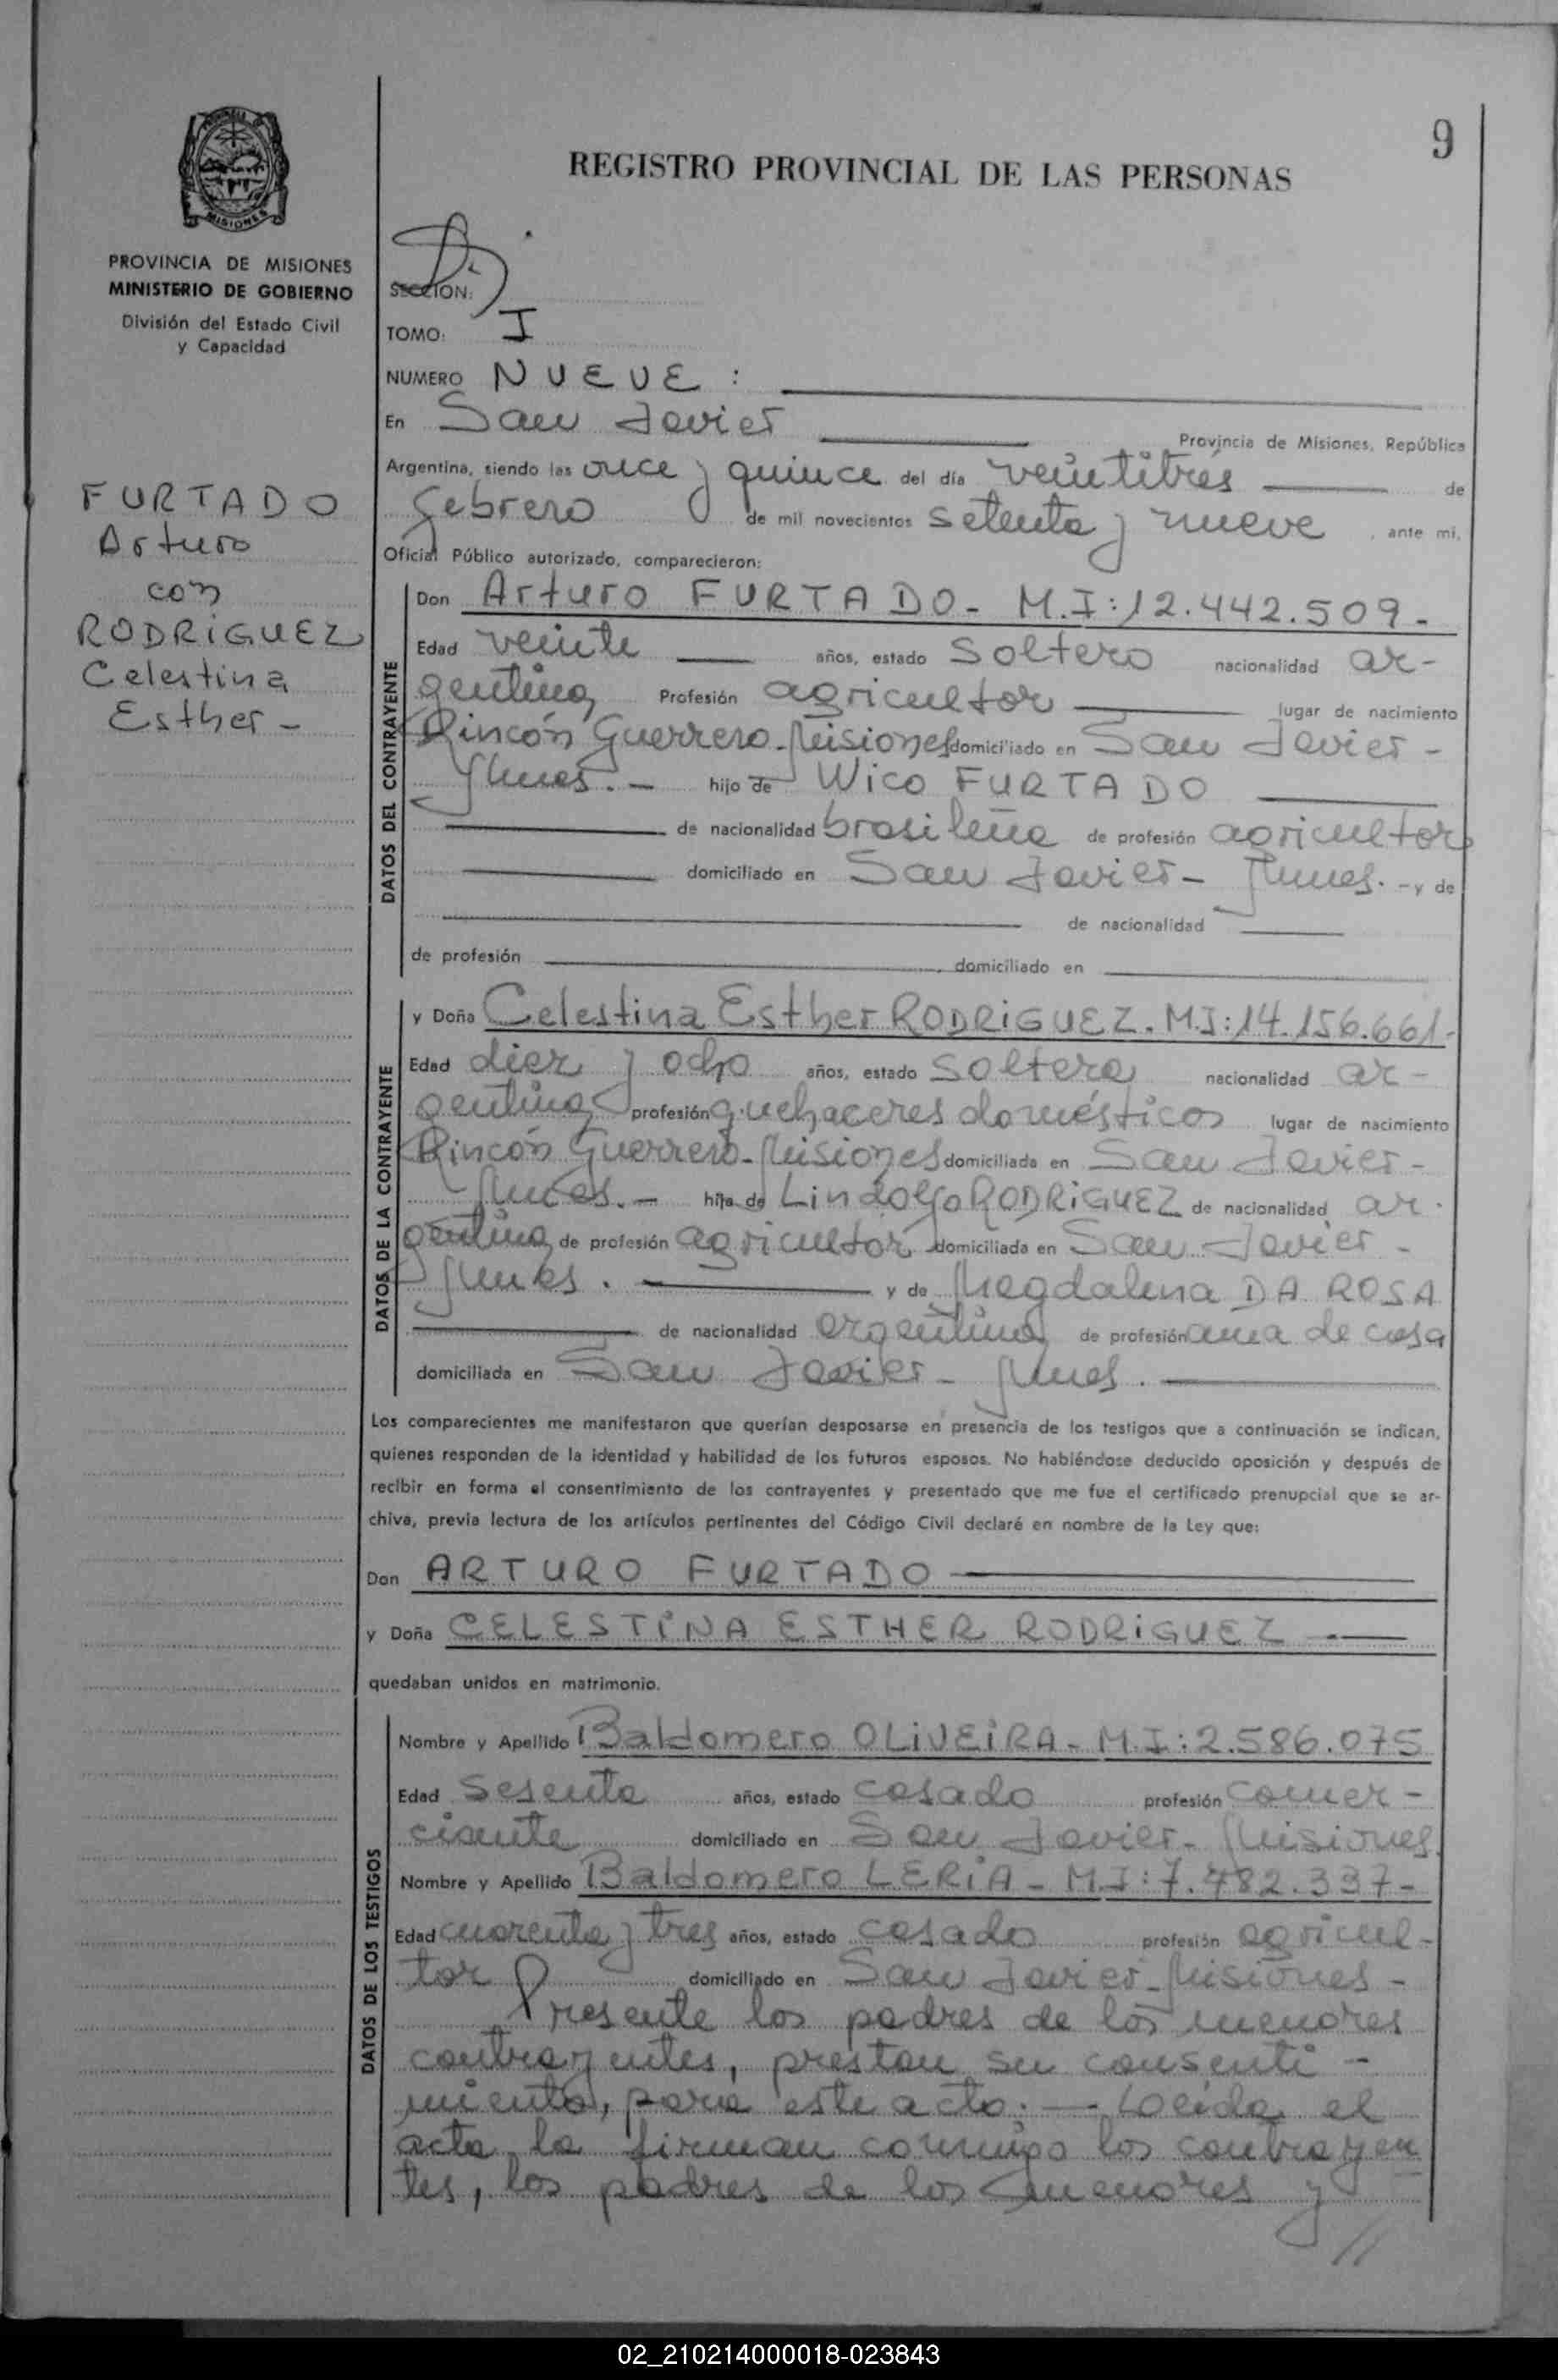 9
REGISTRO PROVINCIAL DE LAS PERSONAS
MISIONES
PROVINCIA DE MISIONES
MINISTERIO DE GOBIERNO
División del Estado Civil
y Capacidad
SECCION:
TOMO: I
NUMERO NUEVE :
En San Javier Provincia de Misiones, República
Argentina, siendo las once y quince del día veintitrés de
febrero de mil novecientos setenta y nueve , ante mi,
Oficial Público autorizado, comparecieron:
FURTADO
Arturo
con
RODRiGUEZ
Celestina
Esther -
DATOS DEL CONTRAYENTE
Don Arturo FURTADO - M.I:12.442.509.-
Edad veinte años, estado soltero nacionalidad ar-
gentina Profesión agricultor lugar de nacimiento
Rincón Guerrero-Misiones domiciliado en San Javier -
Mnes. - hijo de Wico FURTADO
de nacionalidad brasileña de profesión agricultor
domiciliado en San Javier - Mnes. - y de
de nacionalidad
de profesión , domiciliado en
DATOS DE LA CONTRAYENTE
y Doña Celestina Esther RODRiGUEZ. M.I:14.156.661-
Edad diez y ocho años, estado soltera nacionalidad ar-
gentina profesión quehaceres domésticos lugar de nacimiento
Rincón Guerrero-Misiones domiciliada en San Javier -
Mnes. - hija de Lindolfo RODRiGUEZ de nacionalidad ar-
gentina de profesión agricultor domiciliada en San Javier -
Mnes. y de Magdalena DA ROSA
de nacionalidad argentina de profesión ama de casa
domiciliada en San Javier - Mnes.
Los comparecientes me manifestaron que querían desposarse en presencia de los testigos que a continuación se indican,
quienes responden de la identidad y habilidad de los futuros esposos. No habiéndose deducido oposición y después de
recibir en forma el consentimiento de los contrayentes y presentado que me fue el certificado prenupcial que se ar-
chiva, previa lectura de los artículos pertinentes del Código Civil declaré en nombre de la Ley que:
Don ARTURO FURTADO
y Doña CELESTiNA ESTHER RODRiGUEZ
quedaban unidos en matrimonio.
DATOS DE LOS TESTIGOS
Nombre y Apellido Baldomero OLiVEiRA - M.I:2.586.075
Edad sesenta años, estado casado profesión comer-
ciante domiciliado en San Javier - Misiones.
Nombre y Apellido Baldomero LERiA - M.I:7.482.337-
Edad cuarenta y tres años, estado casado profesión agricul-
tor domiciliado en San Javier - Misiones -
Presente los padres de los menores
contrayentes, prestan su consenti-
miento, para este acto. - Leída el
acta la firman conmigo los contrayen
tes, los padres de los menores y
//
02_210214000018-023843